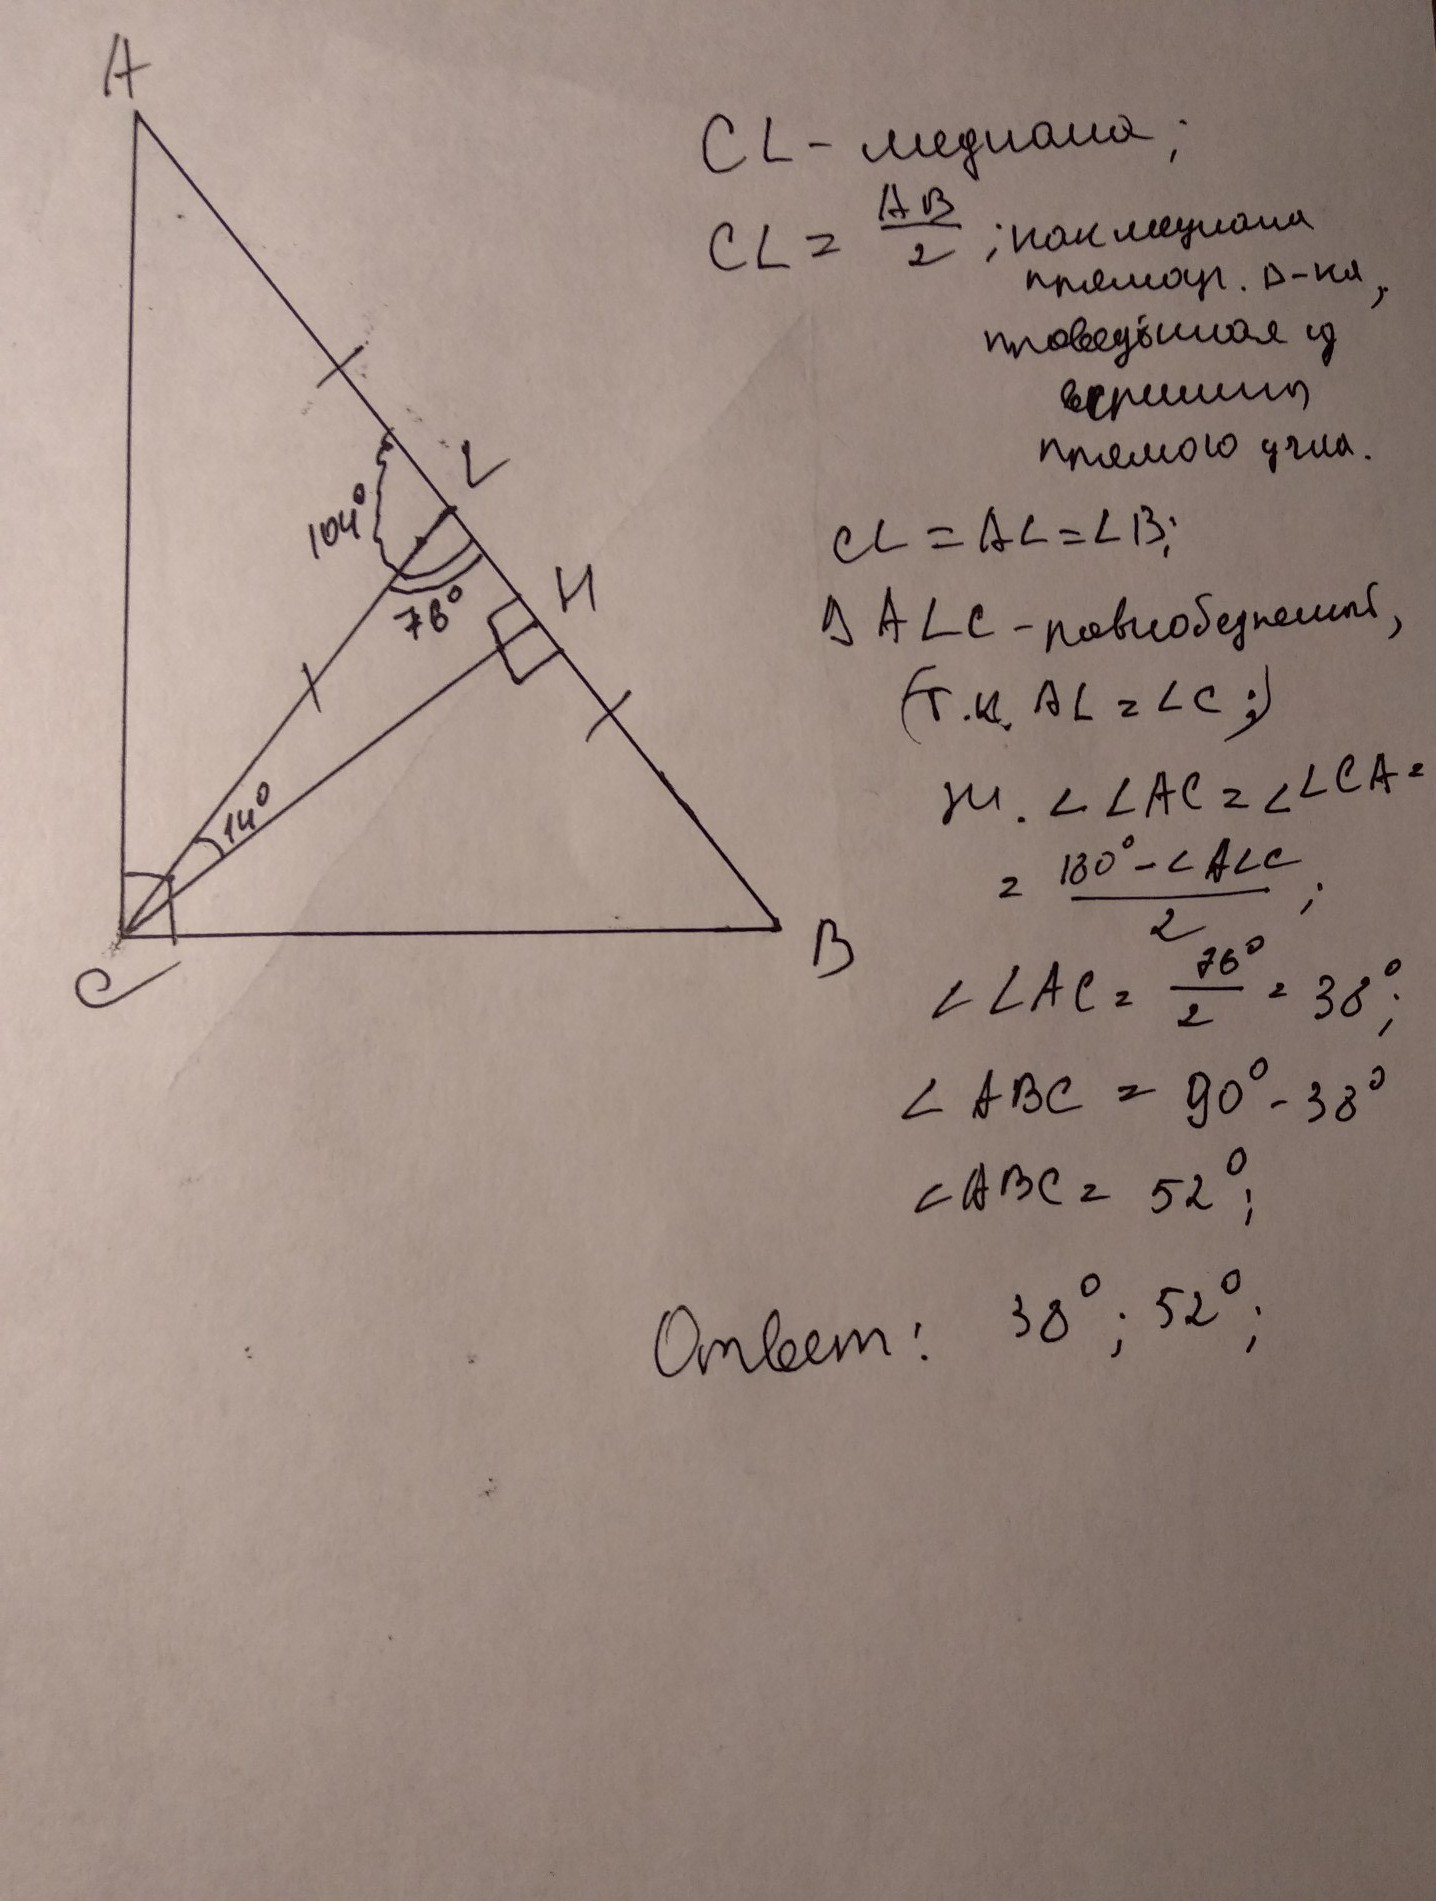 A
CL - медиана;
CL = AB/2 ; как медиана
прямоуг. Δ-ка,
проведённая из
вершины
прямого угла.
L
104°
CL = AL = LB;
H
76°
Δ ALC - равнобедренный,
(т.к. AL = LC ;)
∠ LAC = ∠ LCA =
14°
= 180° - ∠ALC / 2 ;
B
C
∠ LAC = 76°/2 = 38°;
∠ ABC = 90° - 38°
∠ ABC = 52°;
Ответ: 38°; 52°;